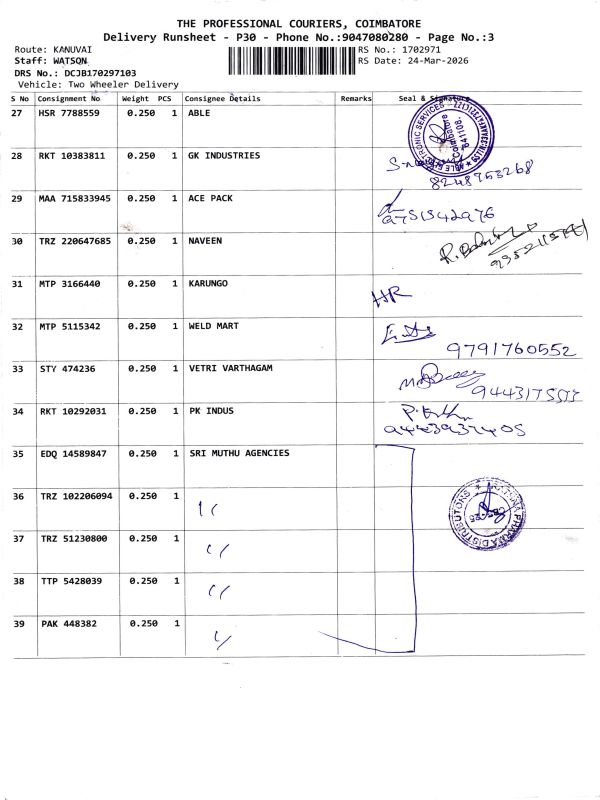 THE PROFESSIONAL COURIERS, COIMBATORE
Delivery Runsheet - P30 - Phone No.:9047080280 - Page No.:3
Route: KANUVAI
RS No.: 1702971
Staff: WATSON
RS Date: 24-Mar-2026
DRS No.: DCJB170297103
Vehicle: Two Wheeler Delivery
S No Consignment No Weight PCS Consignee Details Remarks Seal & Signature
27 HSR 7788559 0.250 1 ABLE
28 RKT 10383811 0.250 1 GK INDUSTRIES
8248753268
29 MAA 715833945 0.250 1 ACE PACK
9751542976
30 TRZ 220647685 0.250 1 NAVEEN
31 MTP 3166440 0.250 1 KARUNGO
HR
32 MTP 5115342 0.250 1 WELD MART
9791760552
33 STY 474236 0.250 1 VETRI VARTHAGAM
34 RKT 10292031 0.250 1 PK INDUS
9443937405
35 EDQ 14589847 0.250 1 SRI MUTHU AGENCIES
36 TRZ 102206094 0.250 1 "
37 TRZ 51230800 0.250 1 "
38 TTP 5428039 0.250 1 "
39 PAK 448382 0.250 1 "